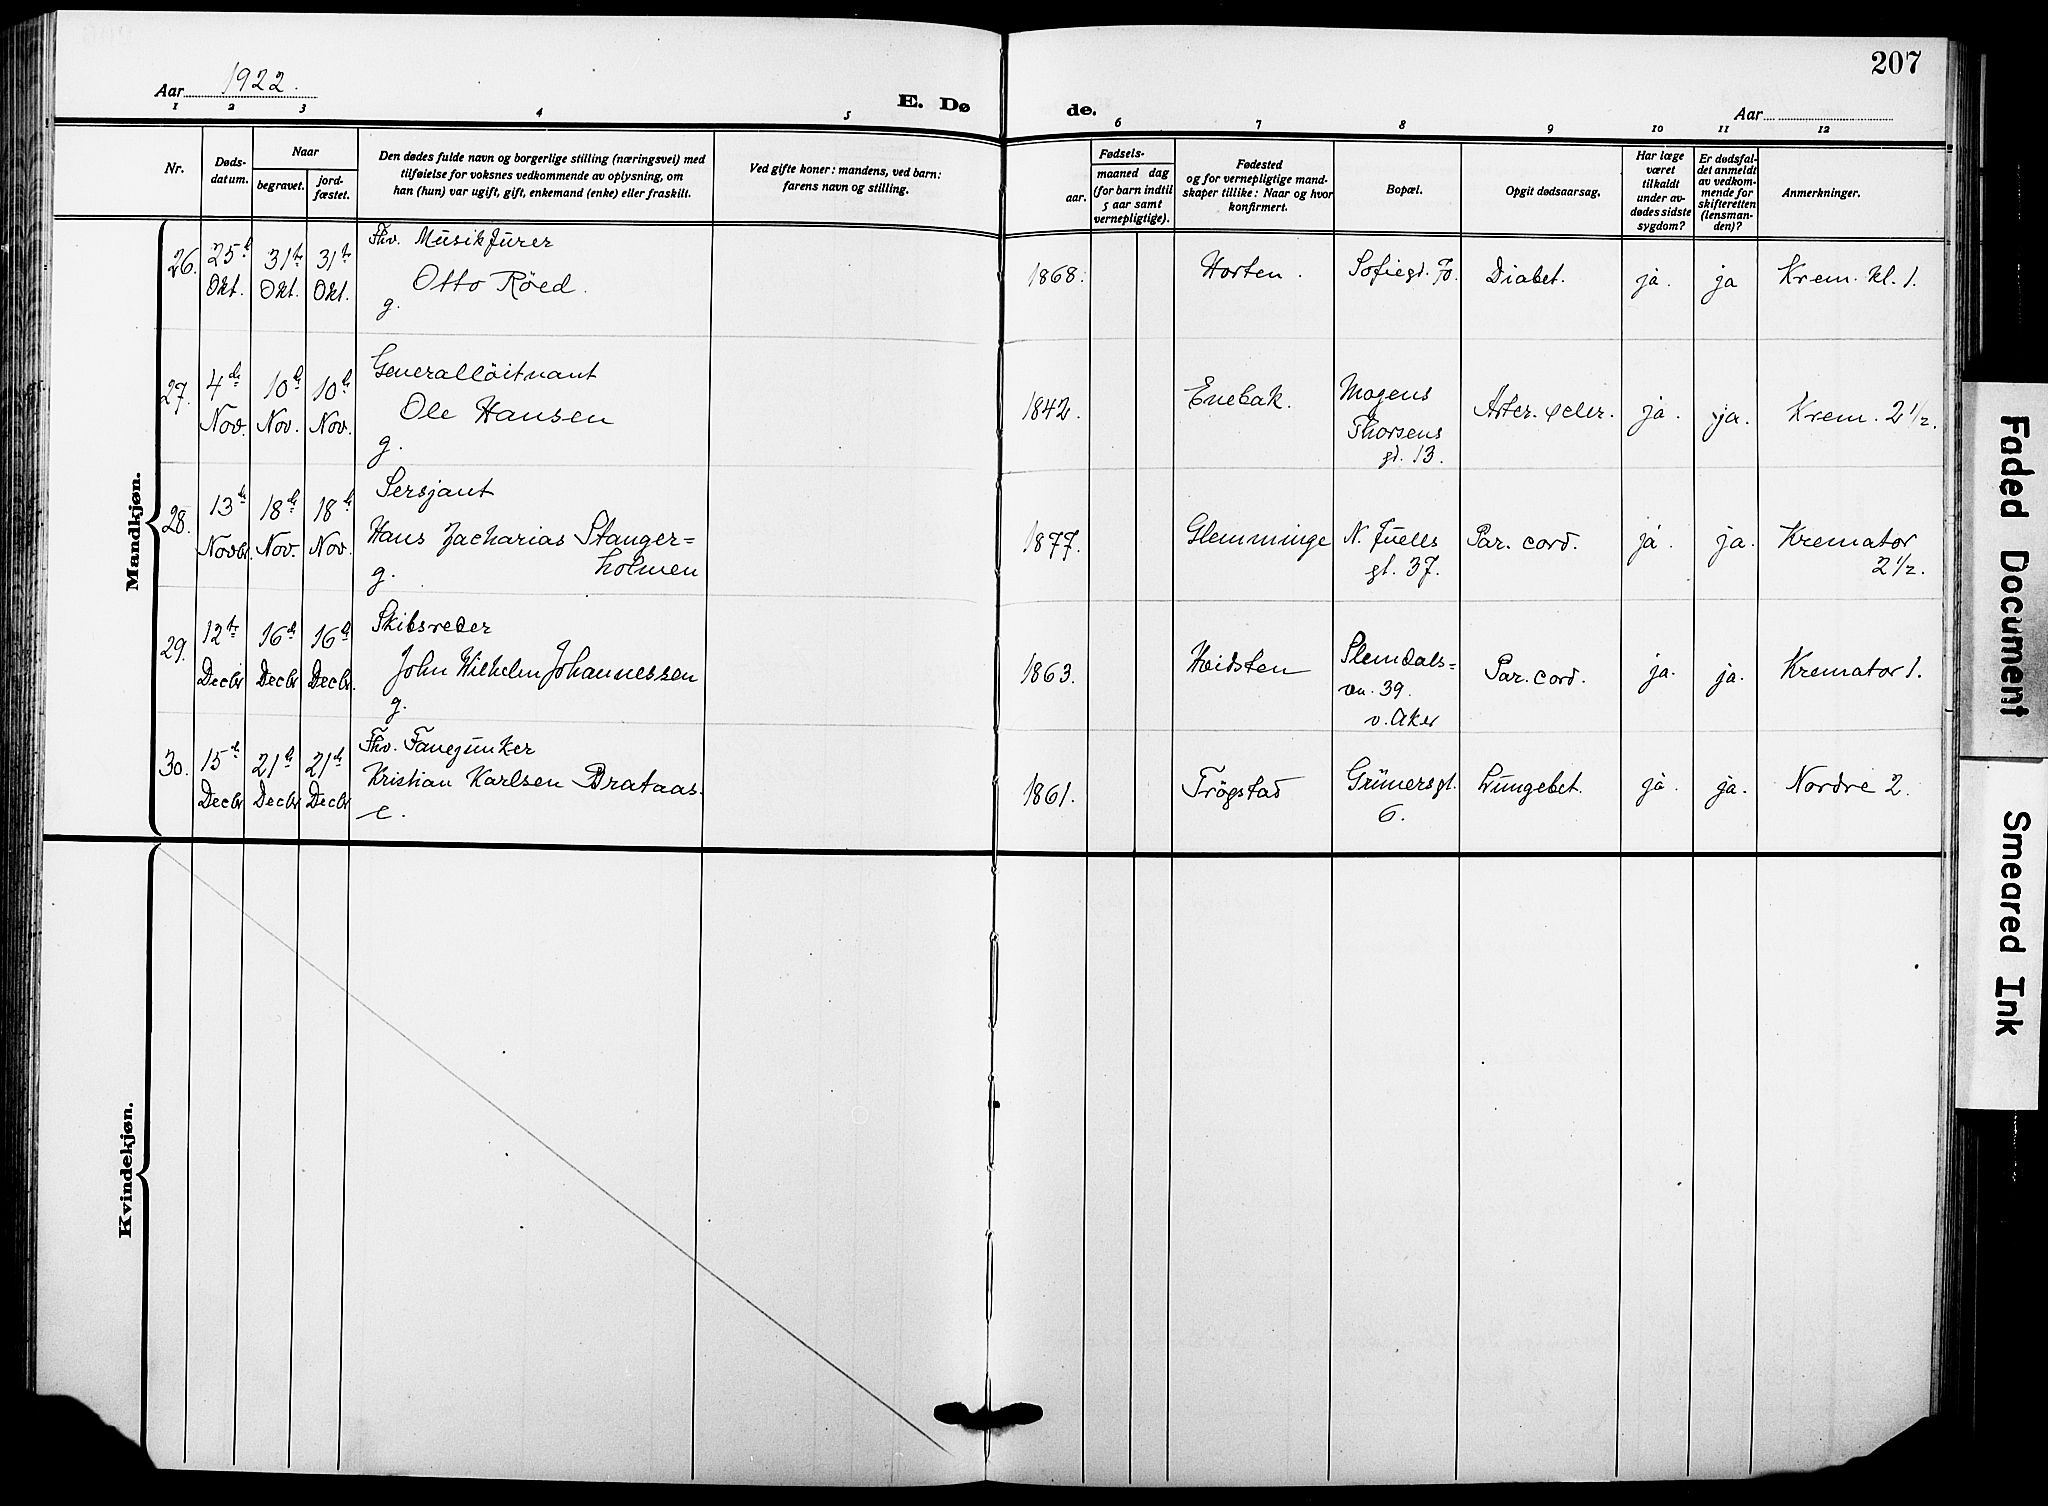 207
Aar 1922.
E. Døde.
Aar
1 2 3 4 5 6 7 8 9 10 11 12
Nr.
Døds-
datum.
Naar
begravet.
jord-
fæstet.
Den dødes fulde navn og borgerlige stilling (næringsvei) med
tilføielse for voksnes vedkommende av oplysning, om
han (hun) var ugift, gift, enkemand (enke) eller fraskilt.
Ved gifte koner: mandens, ved barn:
farens navn og stilling.
Fødsels-
aar.
maaned dag
(for barn indtil
5 aar samt
vernepligtige).
Fødested
og for vernepligtige mand-
skaper tillike: Naar og hvor
konfirmert.
Bopæl.
Opgit dødsaarsag.
Har læge
været
tilkaldt
under av-
dødes sidste
sygdom?
Er dødsfal-
det anmeldt
av vedkom-
mende for
skifteretten
(lensman-
den)?
Anmerkninger.
Mandkjøn.
26. 25t Okt. 31te Okt. 31te Okt.
Fhv. Musikfurer
Otto Röed.
g.
1868. Horten. Sofiegt. 70. Diabet. ja. ja Krem. kl. 1.
27. 4de Nov. 10de Nov. 10de Nov.
Generallöitnant
Ole Hansen
g.
1842. Enebak. Mogens
Thorsens
gt. 13.
Arter. scler. ja. ja. Krem. 2 1/2.
28. 13de Novbr 18de Nov. 18de Nov.
Sersjant
Hans Zacharias Stanger=
holmen
g.
1877. Glemminge N. Juells
gt. 37.
Par. cord. ja. ja. Kremator
2 1/2.
29. 12te Decbr 16de Decbr 16de Decbr.
Skibsreder
John Wilhelm Johannessen
g.
1863. Slemdals=
vn. 39.
v. Aker
Par. cord. ja. ja. Kremator 1.
30. 15de Decbr 21de Decbr 21de Decbr
Fhv. Fanejunker
Kristian Karlsen Brataas.
e.
1861. Trögstad Grünersgt.
6.
Lungebet. ja. ja. Nordre 2.
Kvindekjøn.
Faded Document
Smeared Ink